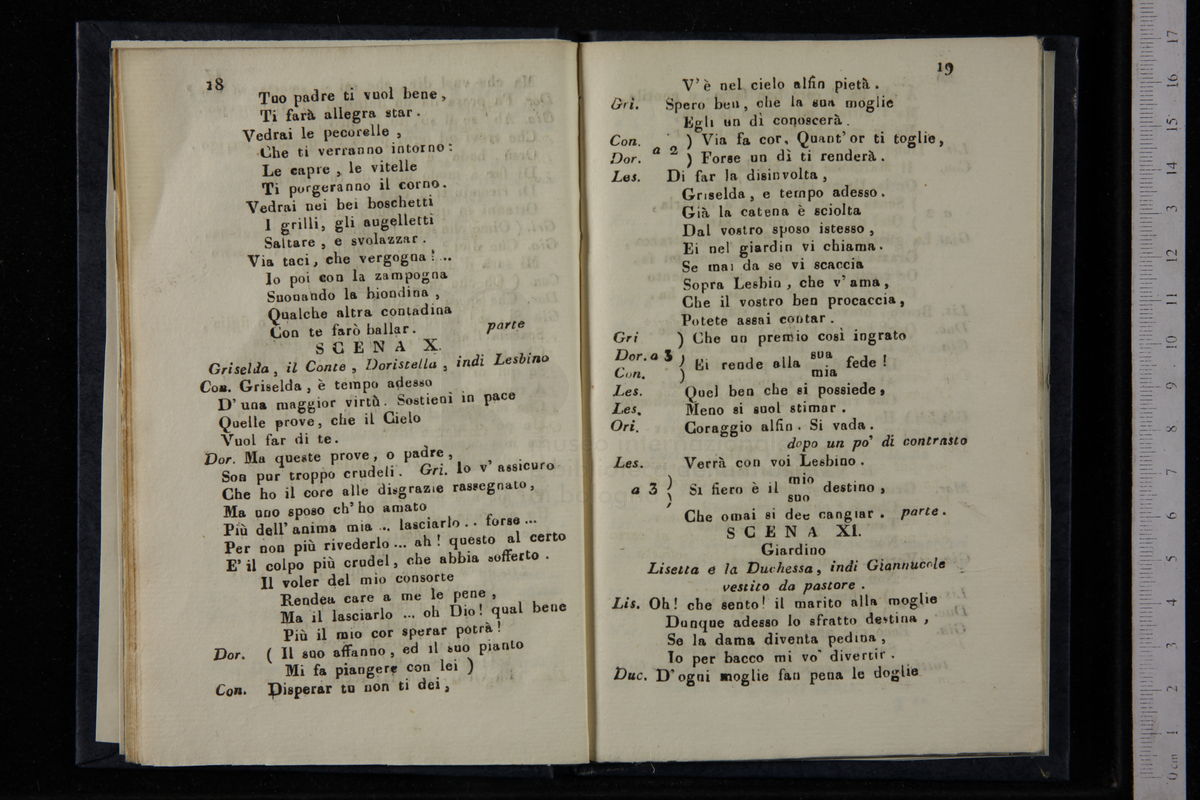 18
Tuo padre ti vuol bene,
Ti farà allegra star.
Vedrai le pecorelle,
Che ti verranno intorno:
Le capre, le vitelle
Ti porgeranno il corno.
Vedrai nei bei boschetti
I grilli, gli augelletti
Saltare, e svolazzar.
Via taci, che vergogna! ..
Io poi con la zampogna
Suonando la biondina,
Qualche altra contadina
Con te farò ballar. parte
SCENA X.
Griselda, il Conte, Doristella, indi Lesbino
Con. Griselda, è tempo adesso
D'una maggior virtù. Sostieni in pace
Quelle prove, che il Cielo
Vuol far di te.
Dor. Ma queste prove, o padre,
Son pur troppo crudeli. Gri. Io v'assicuro
Che ho il core alle disgrazie rassegnato,
Ma uno sposo ch'ho amato
Più dell'anima mia ... lasciarlo .. forse ...
Per non più rivederlo ... ah! questo al certo
E' il colpo più crudel, che abbia sofferto.
Il voler del mio consorte
Rendea care a me le pene,
Ma il lasciarlo ... oh Dio! qual bene
Più il mio cor sperar potrà!
Dor. ( Il suo affanno, ed il suo pianto
Mi fa piangere con lei )
Con. Disperar tu non ti dei,
19
V'è nel cielo alfin pietà.
Gri. Spero ben, che la sua moglie
Egli un dì conoscerà.
Con. a 2 ) Via fa cor, Quant'or ti toglie,
Dor. ) Forse un dì ti renderà.
Les. Di far la disinvolta,
Griselda, e tempo adesso.
Già la catena è sciolta
Dal vostro sposo istesso,
Ei nel giardin vi chiama.
Se mai da se vi scaccia
Sopra Lesbin, che v'ama,
Che il vostro ben procaccia,
Potete assai contar.
Gri ) Che un premio così ingrato
Dor. a 3 ) Ei rende alla sua fede!
Con. ) mia
Les. Quel ben che si possiede,
Les. Meno si suol stimar.
Ori. Coraggio alfin. Si vada.
dopo un po' di contrasto
Les. Verrà con voi Lesbino.
a 3 ) Si fiero è il mio destino,
) suo
Che omai si dee cangiar. parte.
SCENA XI.
Giardino
Lisetta e la Duchessa, indi Giannucole
vestito da pastore.
Lis. Oh! che sento! il marito alla moglie
Dunque adesso lo sfratto destina,
Se la dama diventa pedina,
Io per bacco mi vo' divertir.
Duc. D'ogni moglie fan pena le doglie